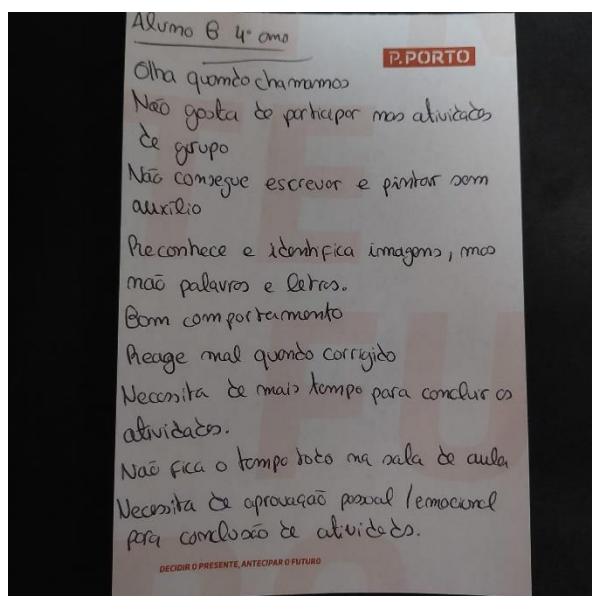 Aluno B 4º ano
P.PORTO
Olha quando chamamos
Não gosta de participar nas atividades
de grupo
Não consegue escrever e pintar sem
auxílio
Reconhece e identifica imagens, mas
não palavras e letras.
Bom comportamento
Reage mal quando corrigido
Necessita de mais tempo para concluir as
atividades.
Não fica o tempo todo na sala de aula
Necessita de aprovação pessoal / emocional
para conclusão de atividades.
DECIDIR O PRESENTE, ANTECIPAR O FUTURO